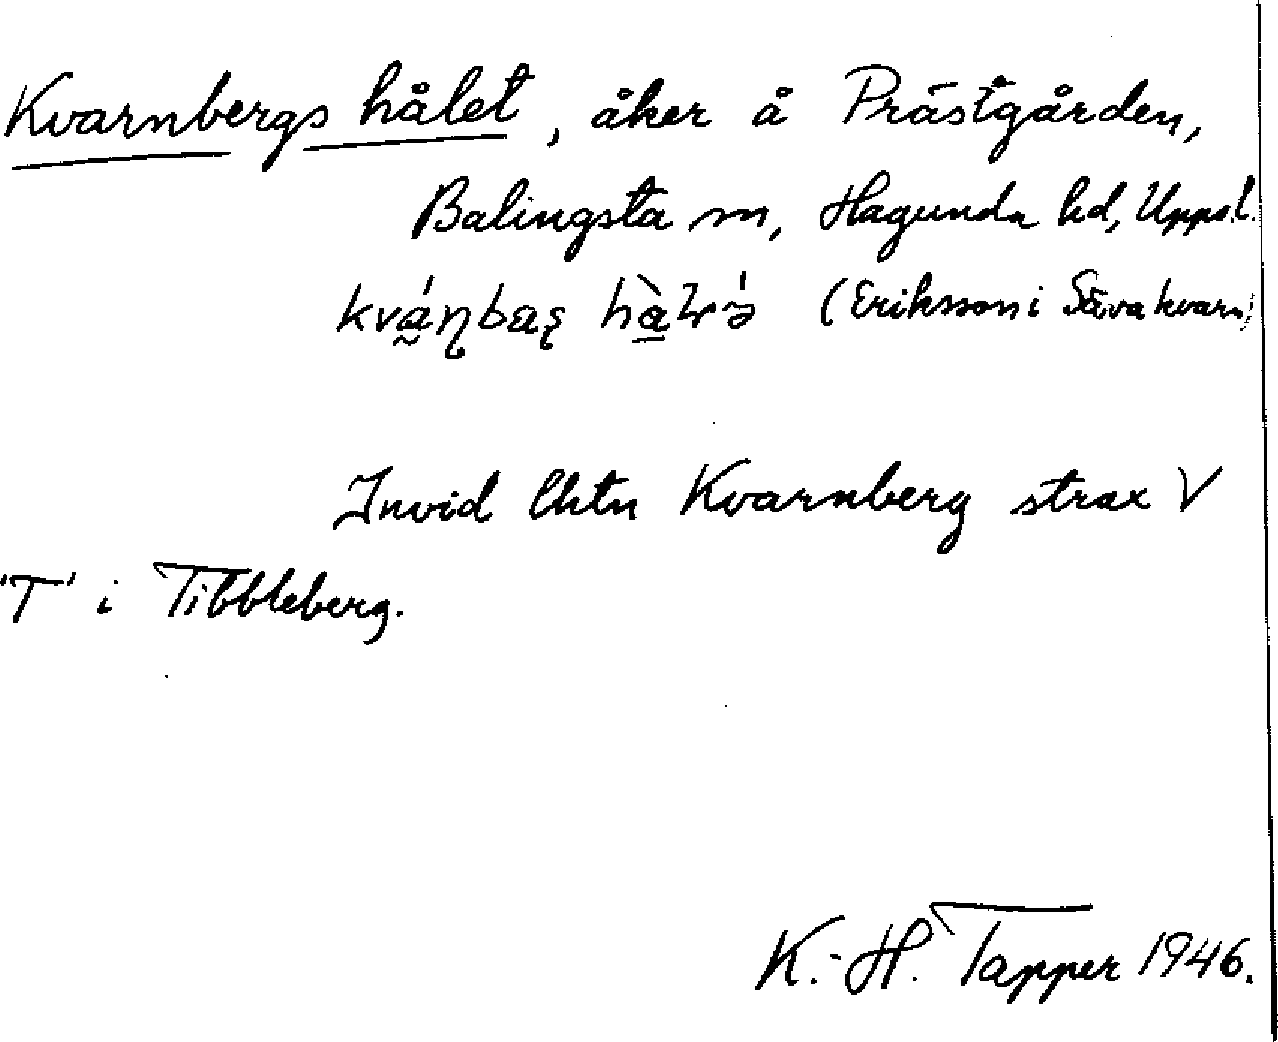 Kvarnbergshålet, åker å Prästgården,
Balingsta sn, Hagunda hd, Uppsl.
(Eriksson i Sävakvarn)
Invid lhtn Kvarnberg strax V
'T' i Tibbleberg.
K.-H. Tapper 1946.